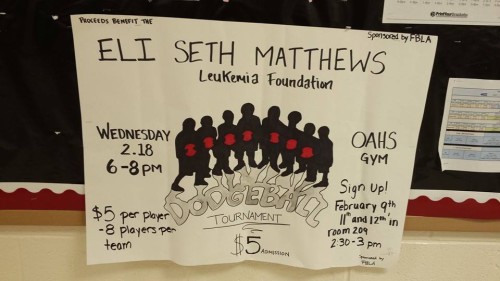 PROCEEDS BENEFIT THE
Sponsored by FBLA
ELI SETH MATTHEWS
Leukemia Foundation
WEDNESDAY
2.18
6-8pm
OAHS
GYM
DODGEBALL
TOURNAMENT
$5 ADMISSION
$5 per player
-8 players per
team
Sign up!
February 9th
11th and 12th in
room 209
2:30-3pm
Sponsored by
FBLA